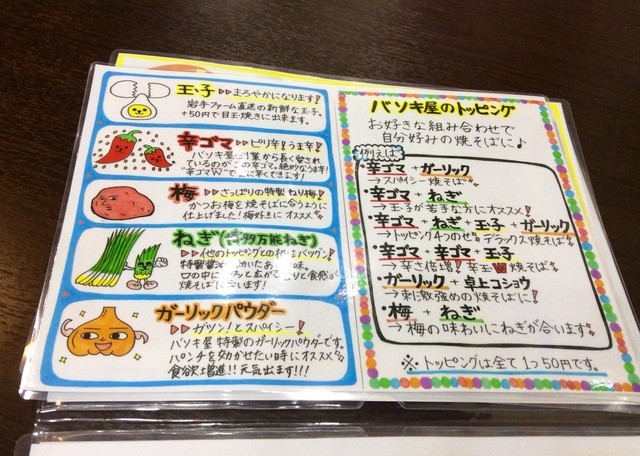 玉子 ▷▷まろやかになります!
岩手ファーム直送の新鮮な玉子。
+50円で目玉焼きに出来ます。
辛ゴマ ▷▷ピリ辛!うま辛!
バソキ屋創業から長く愛され
ているのがこの辛ゴマ。絶妙なうま辛!
"辛ゴマW"で
梅 ▷▷さっぱりの特製ねり梅!
かつお梅を焼そばに合うように
仕上げました!梅好きにオススメ
ねぎ(博多万能ねぎ)
▷▷他のトッピングとの相性バツグン!
特製醤油
口の中に
焼そばに合います!
ガーリックパウダー
▷▷ガツン!とスパイシー!
バソキ屋特製のガーリックパウダーです。
パンチを効かせたい時にオススメ
食欲増進!!元気出ます!!!
バソキ屋のトッピング
お好きな組み合わせで
自分好みの焼そばに♪
例えば
・辛ゴマ+ガーリック
→スパイシー焼そば
・辛ゴマ+ねぎ
→玉子が苦手な方にオススメ!
・辛ゴマ+ねぎ+玉子+ガーリック
→トッピング4つのせデラックス焼そば
・辛ゴマ+辛ゴマ+玉子
→辛さ倍増!辛玉W焼そば
・ガーリック+卓上コショウ
→刺激強めの焼そばに!
・梅+ねぎ
→梅の味わいにねぎが合います
※トッピングは全て1つ50円です。